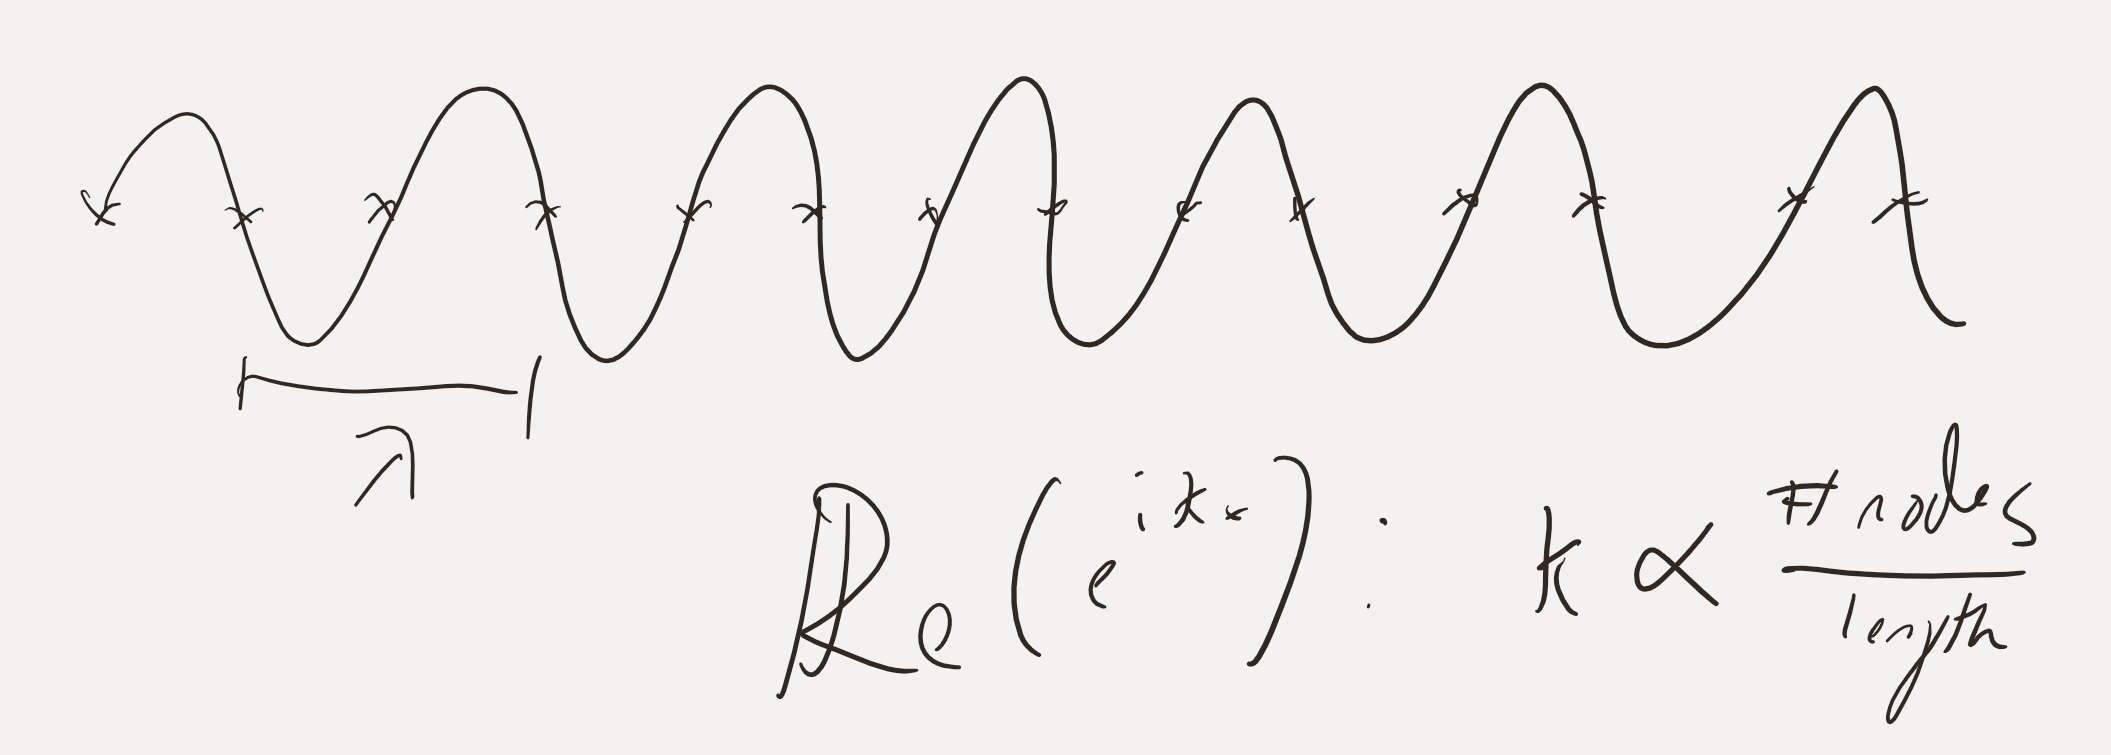 λ
Re(e^{ikx}) : k ∝ # nodes / length